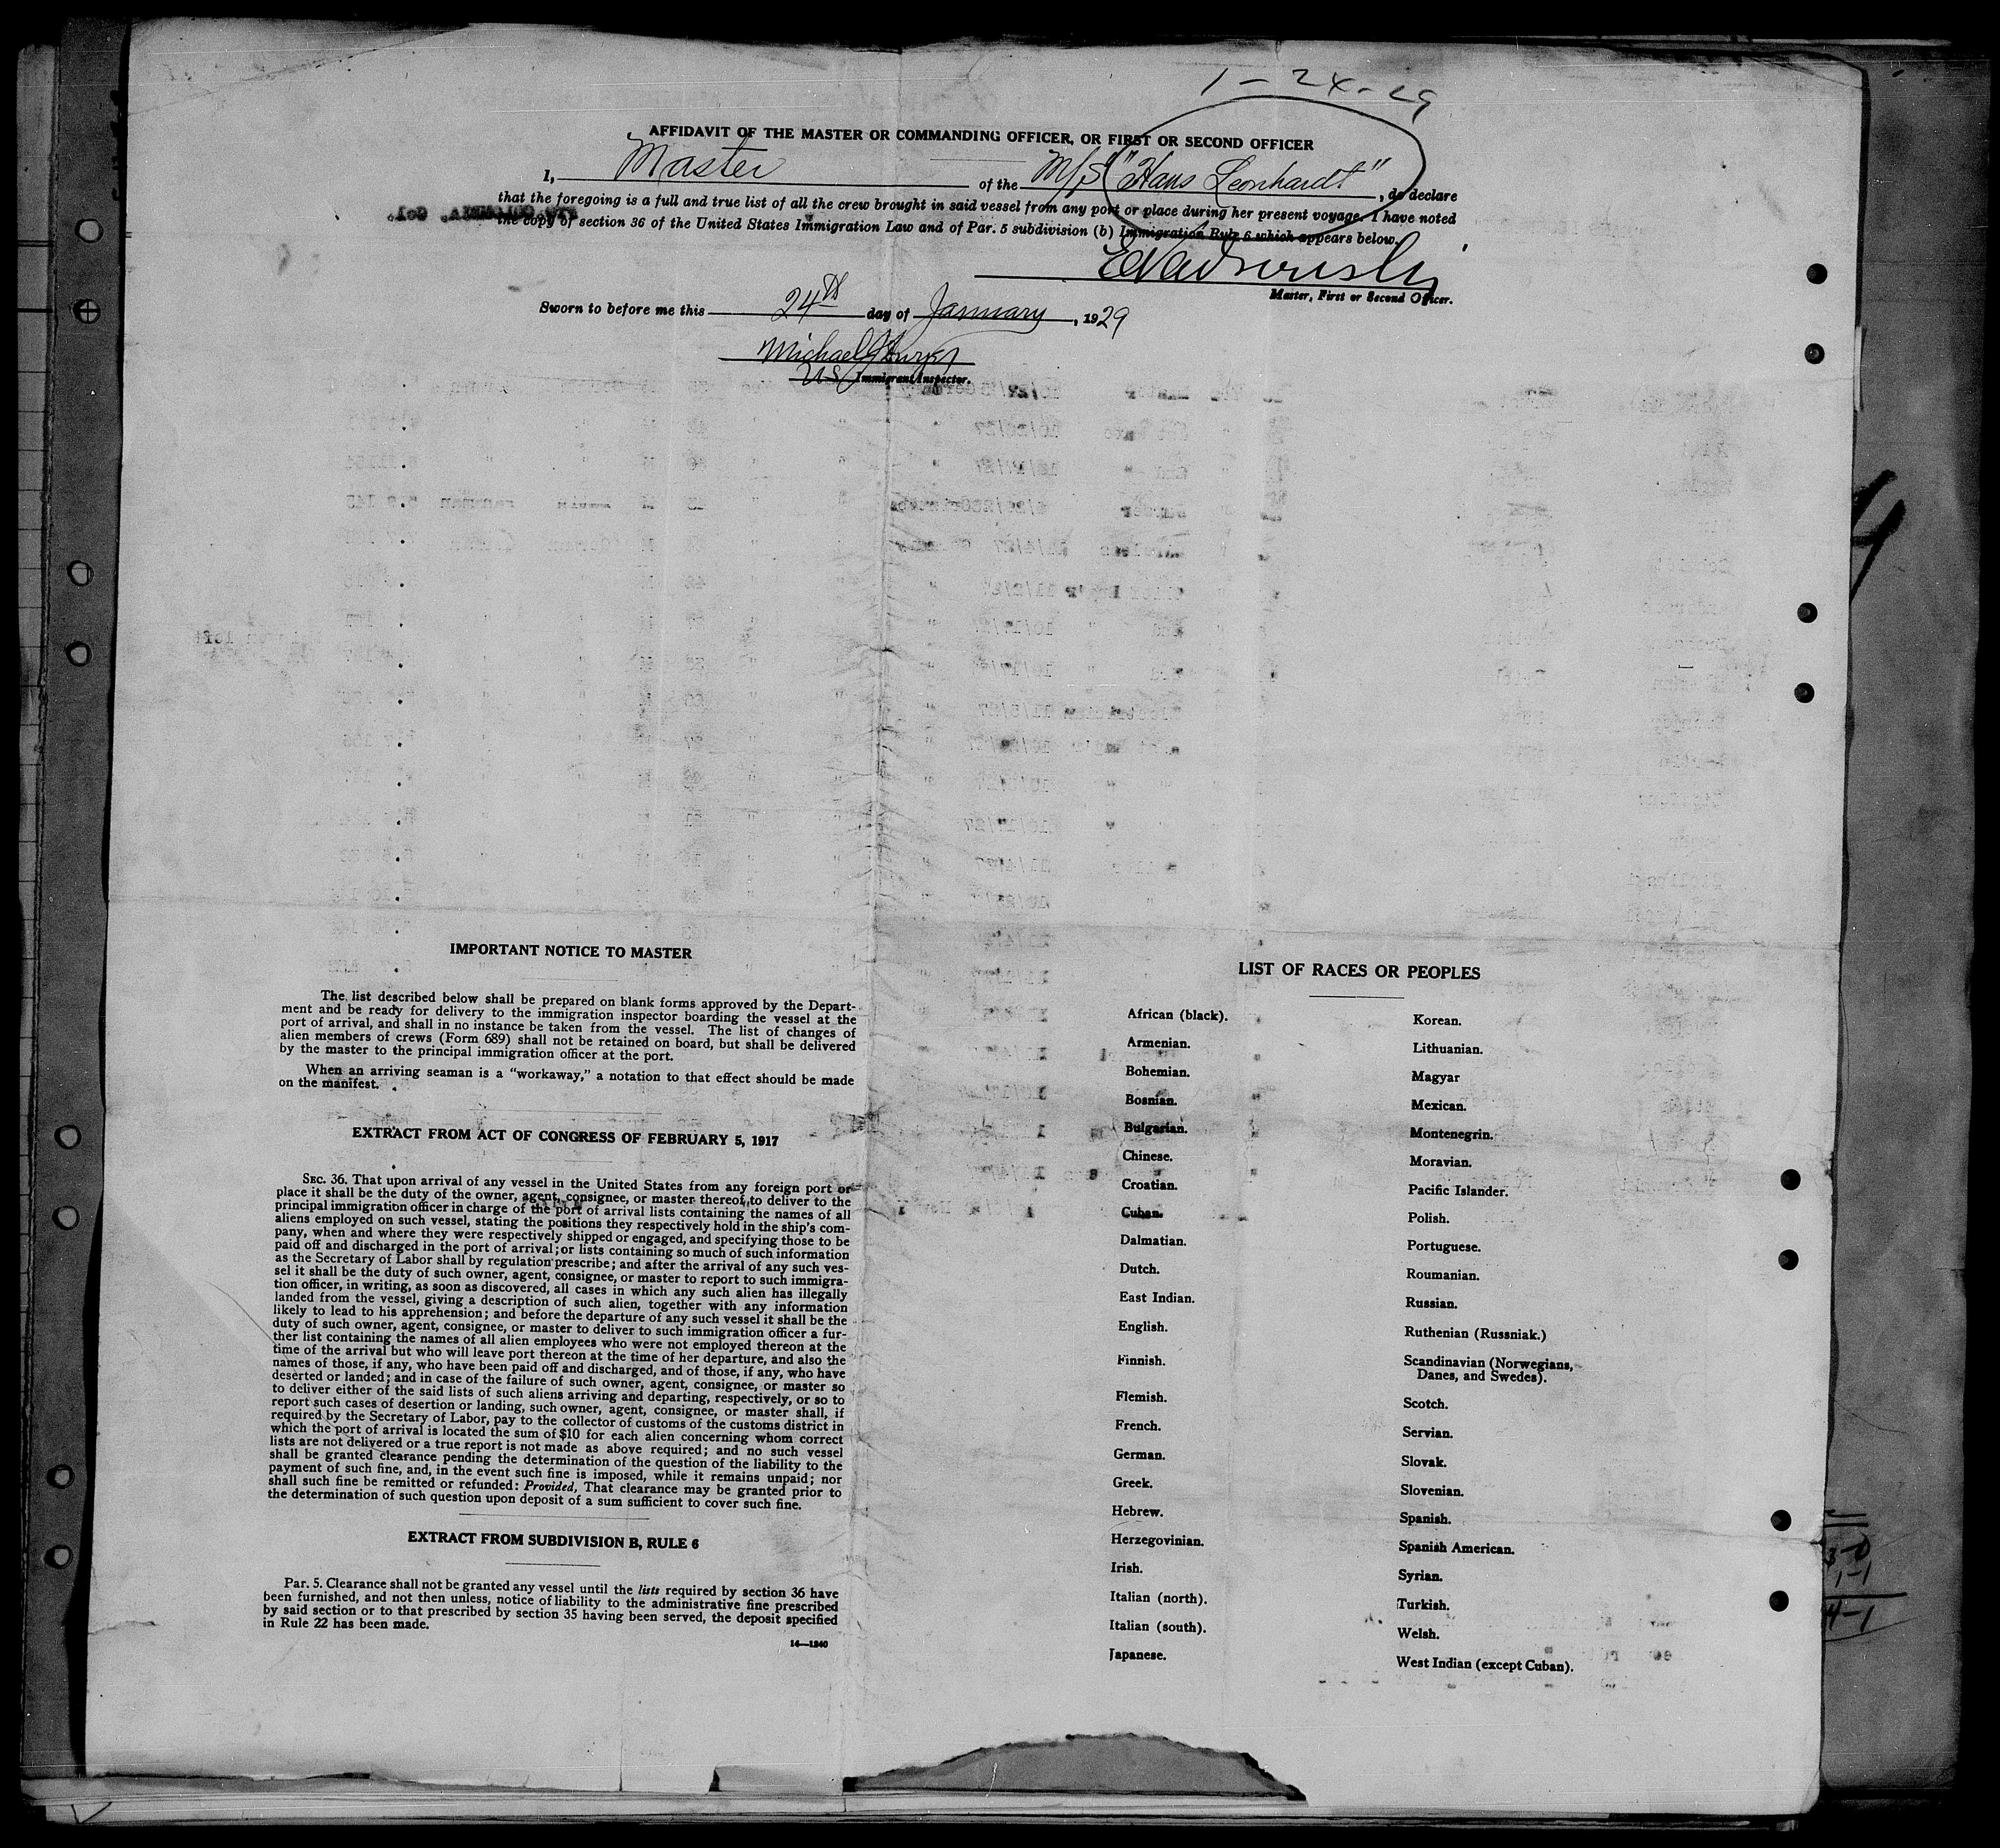 1-24-29
AFFIDAVIT OF THE MASTER OR COMMANDING OFFICER, OR FIRST OR SECOND OFFICER
I, Master of the M/S "Hans Leonhardt", do declare
that the foregoing is a full and true list of all the crew brought in said vessel from any port or place during her present voyage. I have noted
the copy of section 36 of the United States Immigration Law and of Par. 5 subdivision (b) Immigration Rule 6 which appears below.
Master, First or Second Officer.
Sworn to before me this 24th day of January, 1929
Michael
US Immigrant Inspector.
IMPORTANT NOTICE TO MASTER
The list described below shall be prepared on blank forms approved by the Depart-
ment and be ready for delivery to the immigration inspector boarding the vessel at the
port of arrival, and shall in no instance be taken from the vessel. The list of changes of
alien members of crews (Form 689) shall not be retained on board, but shall be delivered
by the master to the principal immigration officer at the port.
When an arriving seaman is a "workaway," a notation to that effect should be made
on the manifest.
EXTRACT FROM ACT OF CONGRESS OF FEBRUARY 5, 1917
SEC. 36. That upon arrival of any vessel in the United States from any foreign port or
place it shall be the duty of the owner, agent, consignee, or master thereof, to deliver to the
principal immigration officer in charge of the port of arrival lists containing the names of all
aliens employed on such vessel, stating the positions they respectively hold in the ship's com-
pany, when and where they were respectively shipped or engaged, and specifying those to be
paid off and discharged in the port of arrival; or lists containing so much of such information
as the Secretary of Labor shall by regulation prescribe; and after the arrival of any such ves-
sel it shall be the duty of such owner, agent, consignee, or master to report to such immigra-
tion officer, in writing, as soon as discovered, all cases in which any such alien has illegally
landed from the vessel, giving a description of such alien, together with any information
likely to lead to his apprehension; and before the departure of any such vessel it shall be the
duty of such owner, agent, consignee, or master to deliver to such immigration officer a fur-
ther list containing the names of all alien employees who were not employed thereon at the
time of the arrival but who will leave port thereon at the time of her departure, and also the
names of those, if any, who have been paid off and discharged, and of those, if any, who have
deserted or landed; and in case of the failure of such owner, agent, consignee, or master so
to deliver either of the said lists of such aliens arriving and departing, respectively, or so to
report such cases of desertion or landing, such owner, agent, consignee, or master shall, if
required by the Secretary of Labor, pay to the collector of customs of the customs district in
which the port of arrival is located the sum of $10 for each alien concerning whom correct
lists are not delivered or a true report is not made as above required; and no such vessel
shall be granted clearance pending the determination of the question of the liability to the
payment of such fine, and, in the event such fine is imposed, while it remains unpaid; nor
shall such fine be remitted or refunded: Provided, That clearance may be granted prior to
the determination of such question upon deposit of a sum sufficient to cover such fine.
EXTRACT FROM SUBDIVISION B, RULE 6
Par. 5. Clearance shall not be granted any vessel until the lists required by section 36 have
been furnished, and not then unless, notice of liability to the administrative fine prescribed
by said section or to that prescribed by section 35 having been served, the deposit specified
in Rule 22 has been made.
14—1240
LIST OF RACES OR PEOPLES
African (black).
Armenian.
Bohemian.
Bosnian.
Bulgarian.
Chinese.
Croatian.
Cuban.
Dalmatian.
Dutch.
East Indian.
English.
Finnish.
Flemish.
French.
German.
Greek.
Hebrew.
Herzegovinian.
Irish.
Italian (north).
Italian (south).
Japanese.
Korean.
Lithuanian.
Magyar
Mexican.
Montenegrin.
Moravian.
Pacific Islander.
Polish.
Portuguese.
Roumanian.
Russian.
Ruthenian (Russniak.)
Scandinavian (Norwegians,
Danes, and Swedes).
Scotch.
Servian.
Slovak.
Slovenian.
Spanish.
Spanish American.
Syrian.
Turkish.
Welsh.
West Indian (except Cuban).